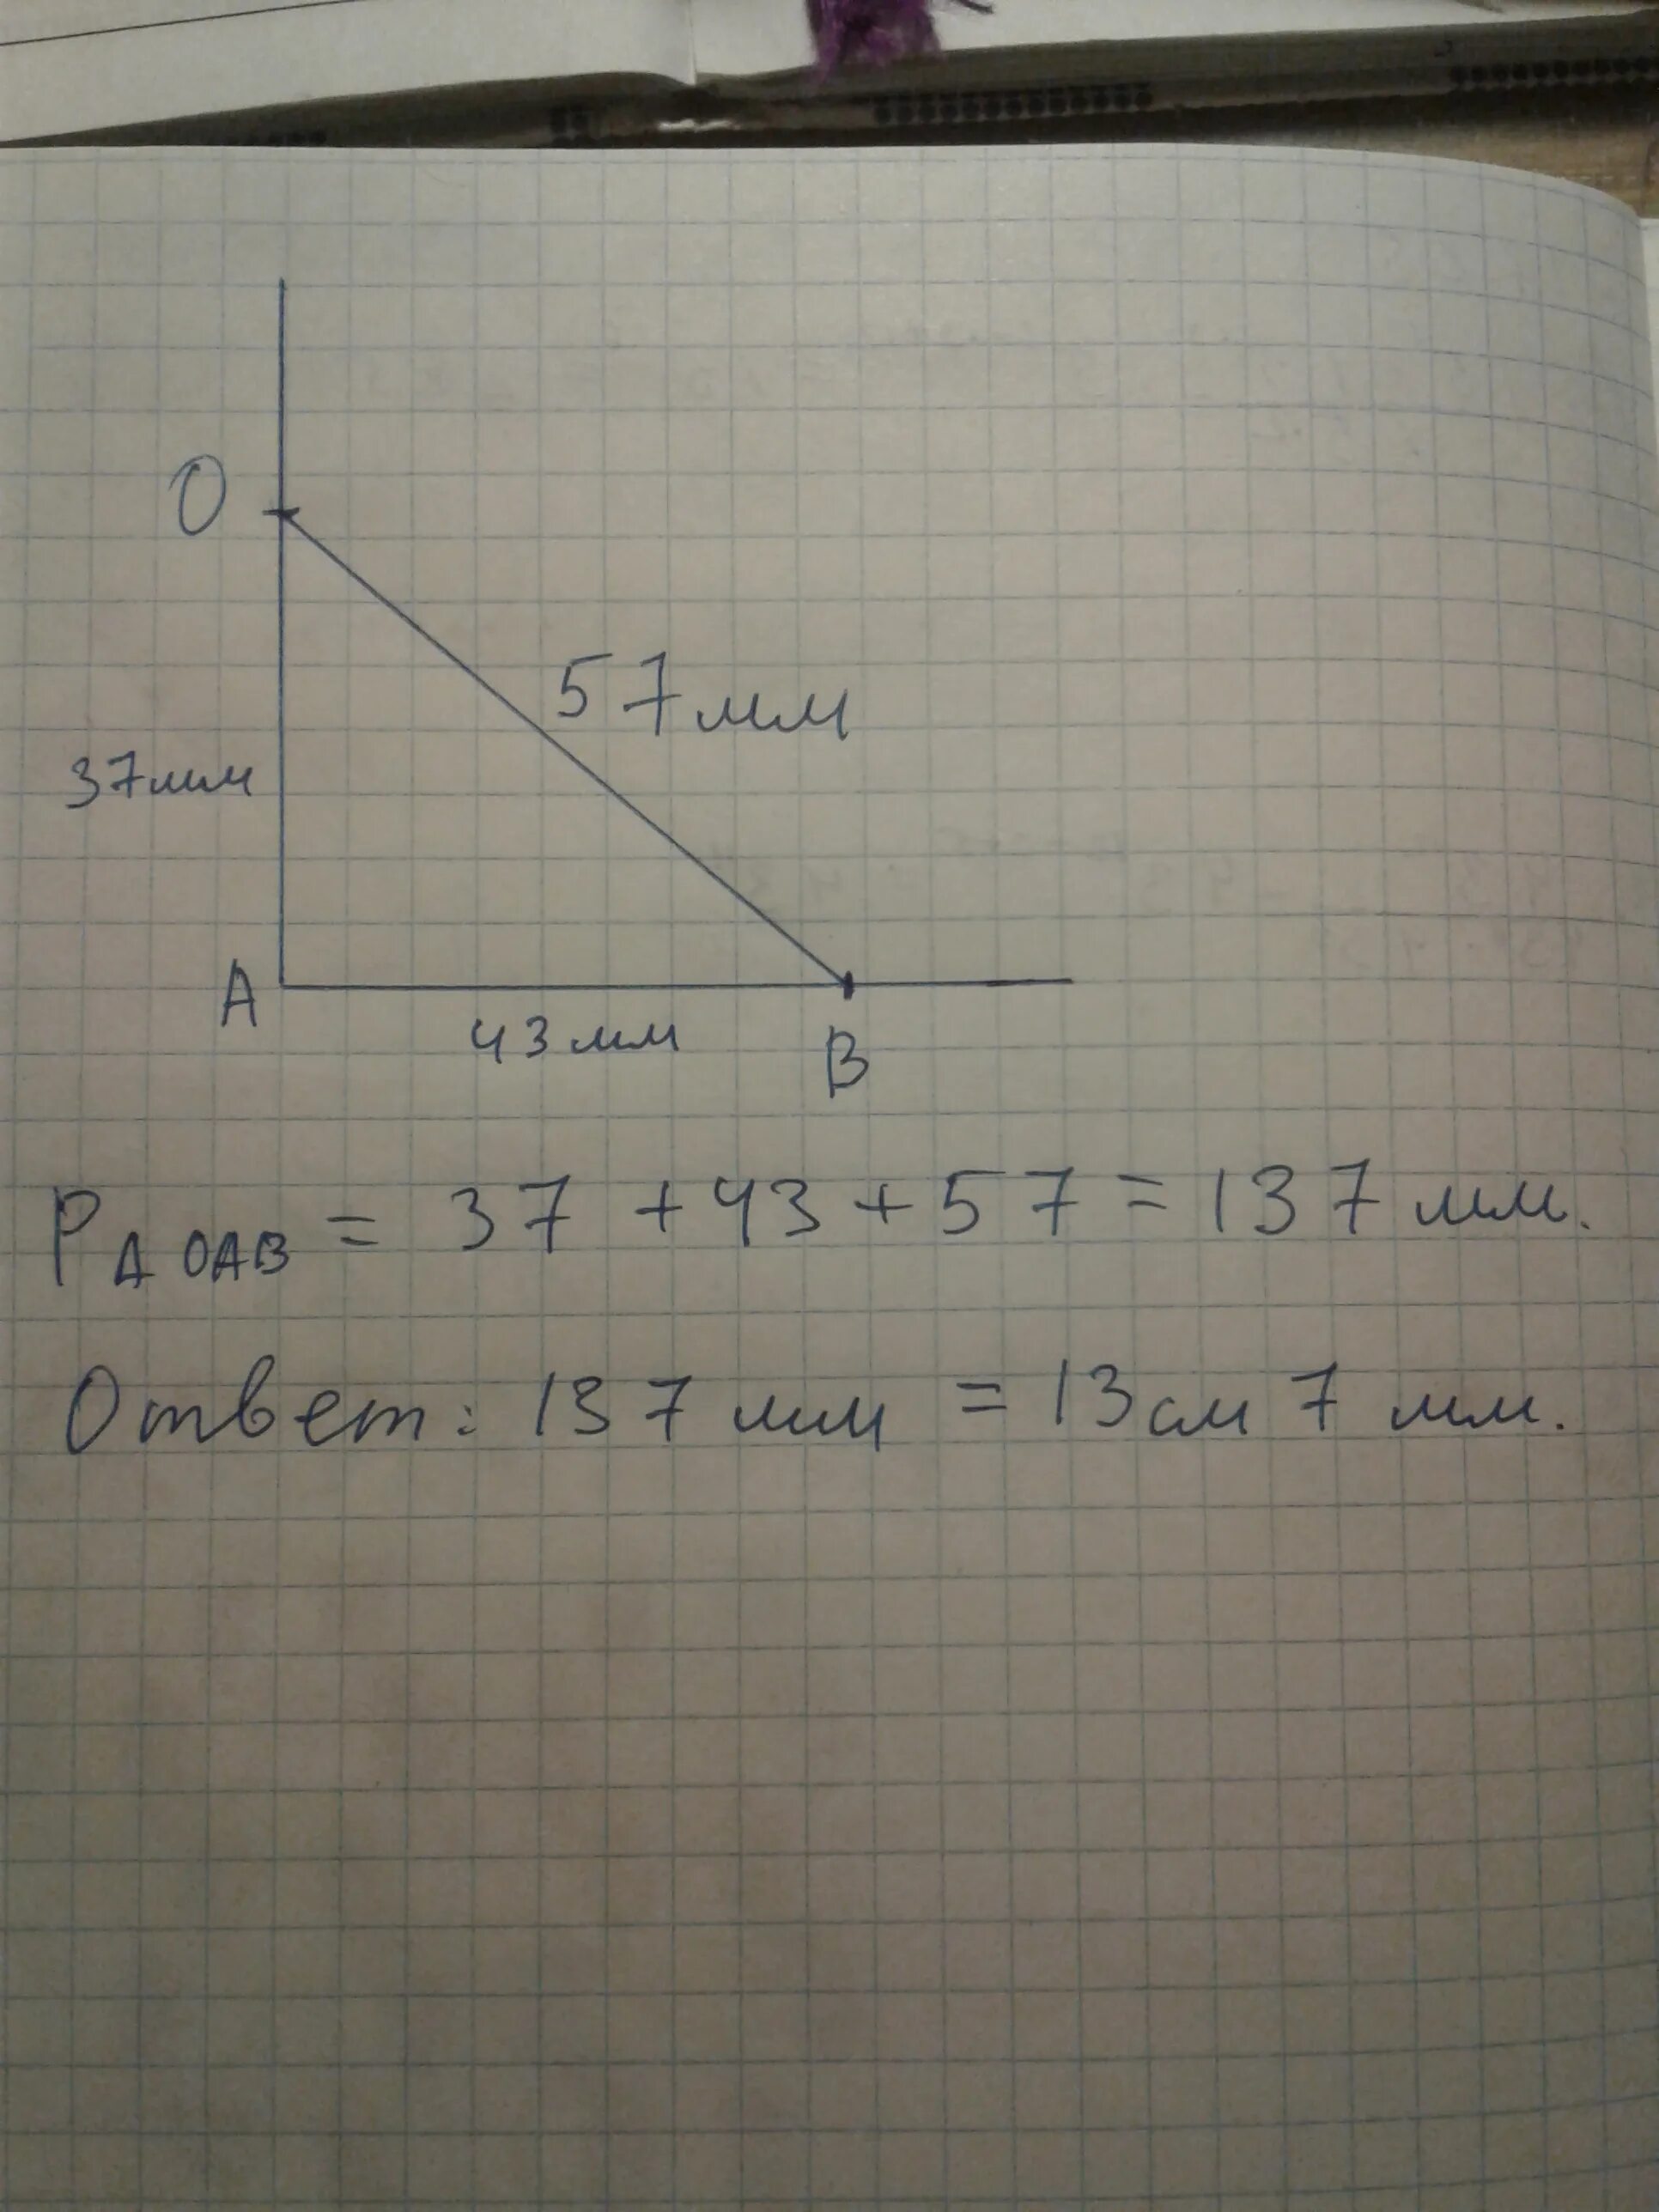 O
57мм
37мм
A
43мм
B
P∆OAB = 37 + 43 + 57 = 137 мм.
Ответ: 137 мм = 13см 7 мм.